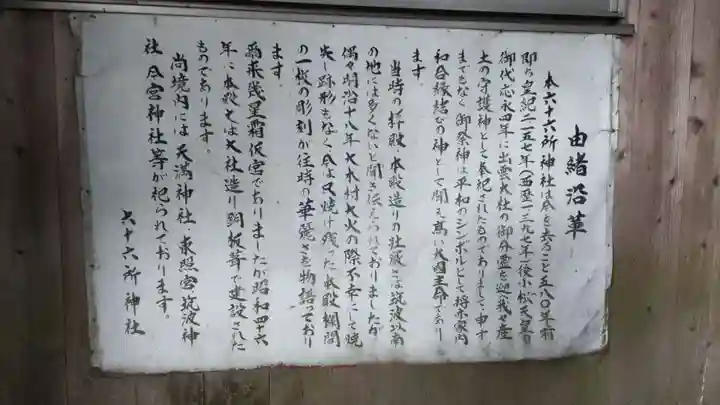 由緒沿革
本六十六所神社は今を去ること五八〇年前
即ち皇紀二〇五七年(西歴一三九七年)後小松天皇の
御代応永四年に出雲大社の御分霊を迎へ我が産
土の守護神として奉祀されたものでありまして申す
までもなく御祭神は平和のシンボルとして将亦家内
和合縁結びの神として聞え高い大国主命であり
ます
当時の拝殿・本殿造りの壮厳さは筑波以南
の地には多くないと聞き伝えられておりましたが
偶々明治十八年大木村大火の際不幸にして焼
失し跡形もなく今は只焼け残った本殿欄間
の一枚の彫刻が往時の華麗さを物語っており
ます
爾来幾星霜仮宮でありましたが昭和四十六
年に本殿は大社造り銅板葺で建設された
ものであります。
尚境内には天満神社・東照宮筑波神
社今宮神社等が祀られております。
六十六所神社